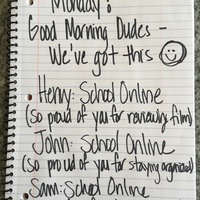 Monday!
Good Morning Dudes -
We've got this
Henry: School Online
(so proud of you for reviewing film)
John: School Online
(so proud of you for staying organized)
Sam: School Online